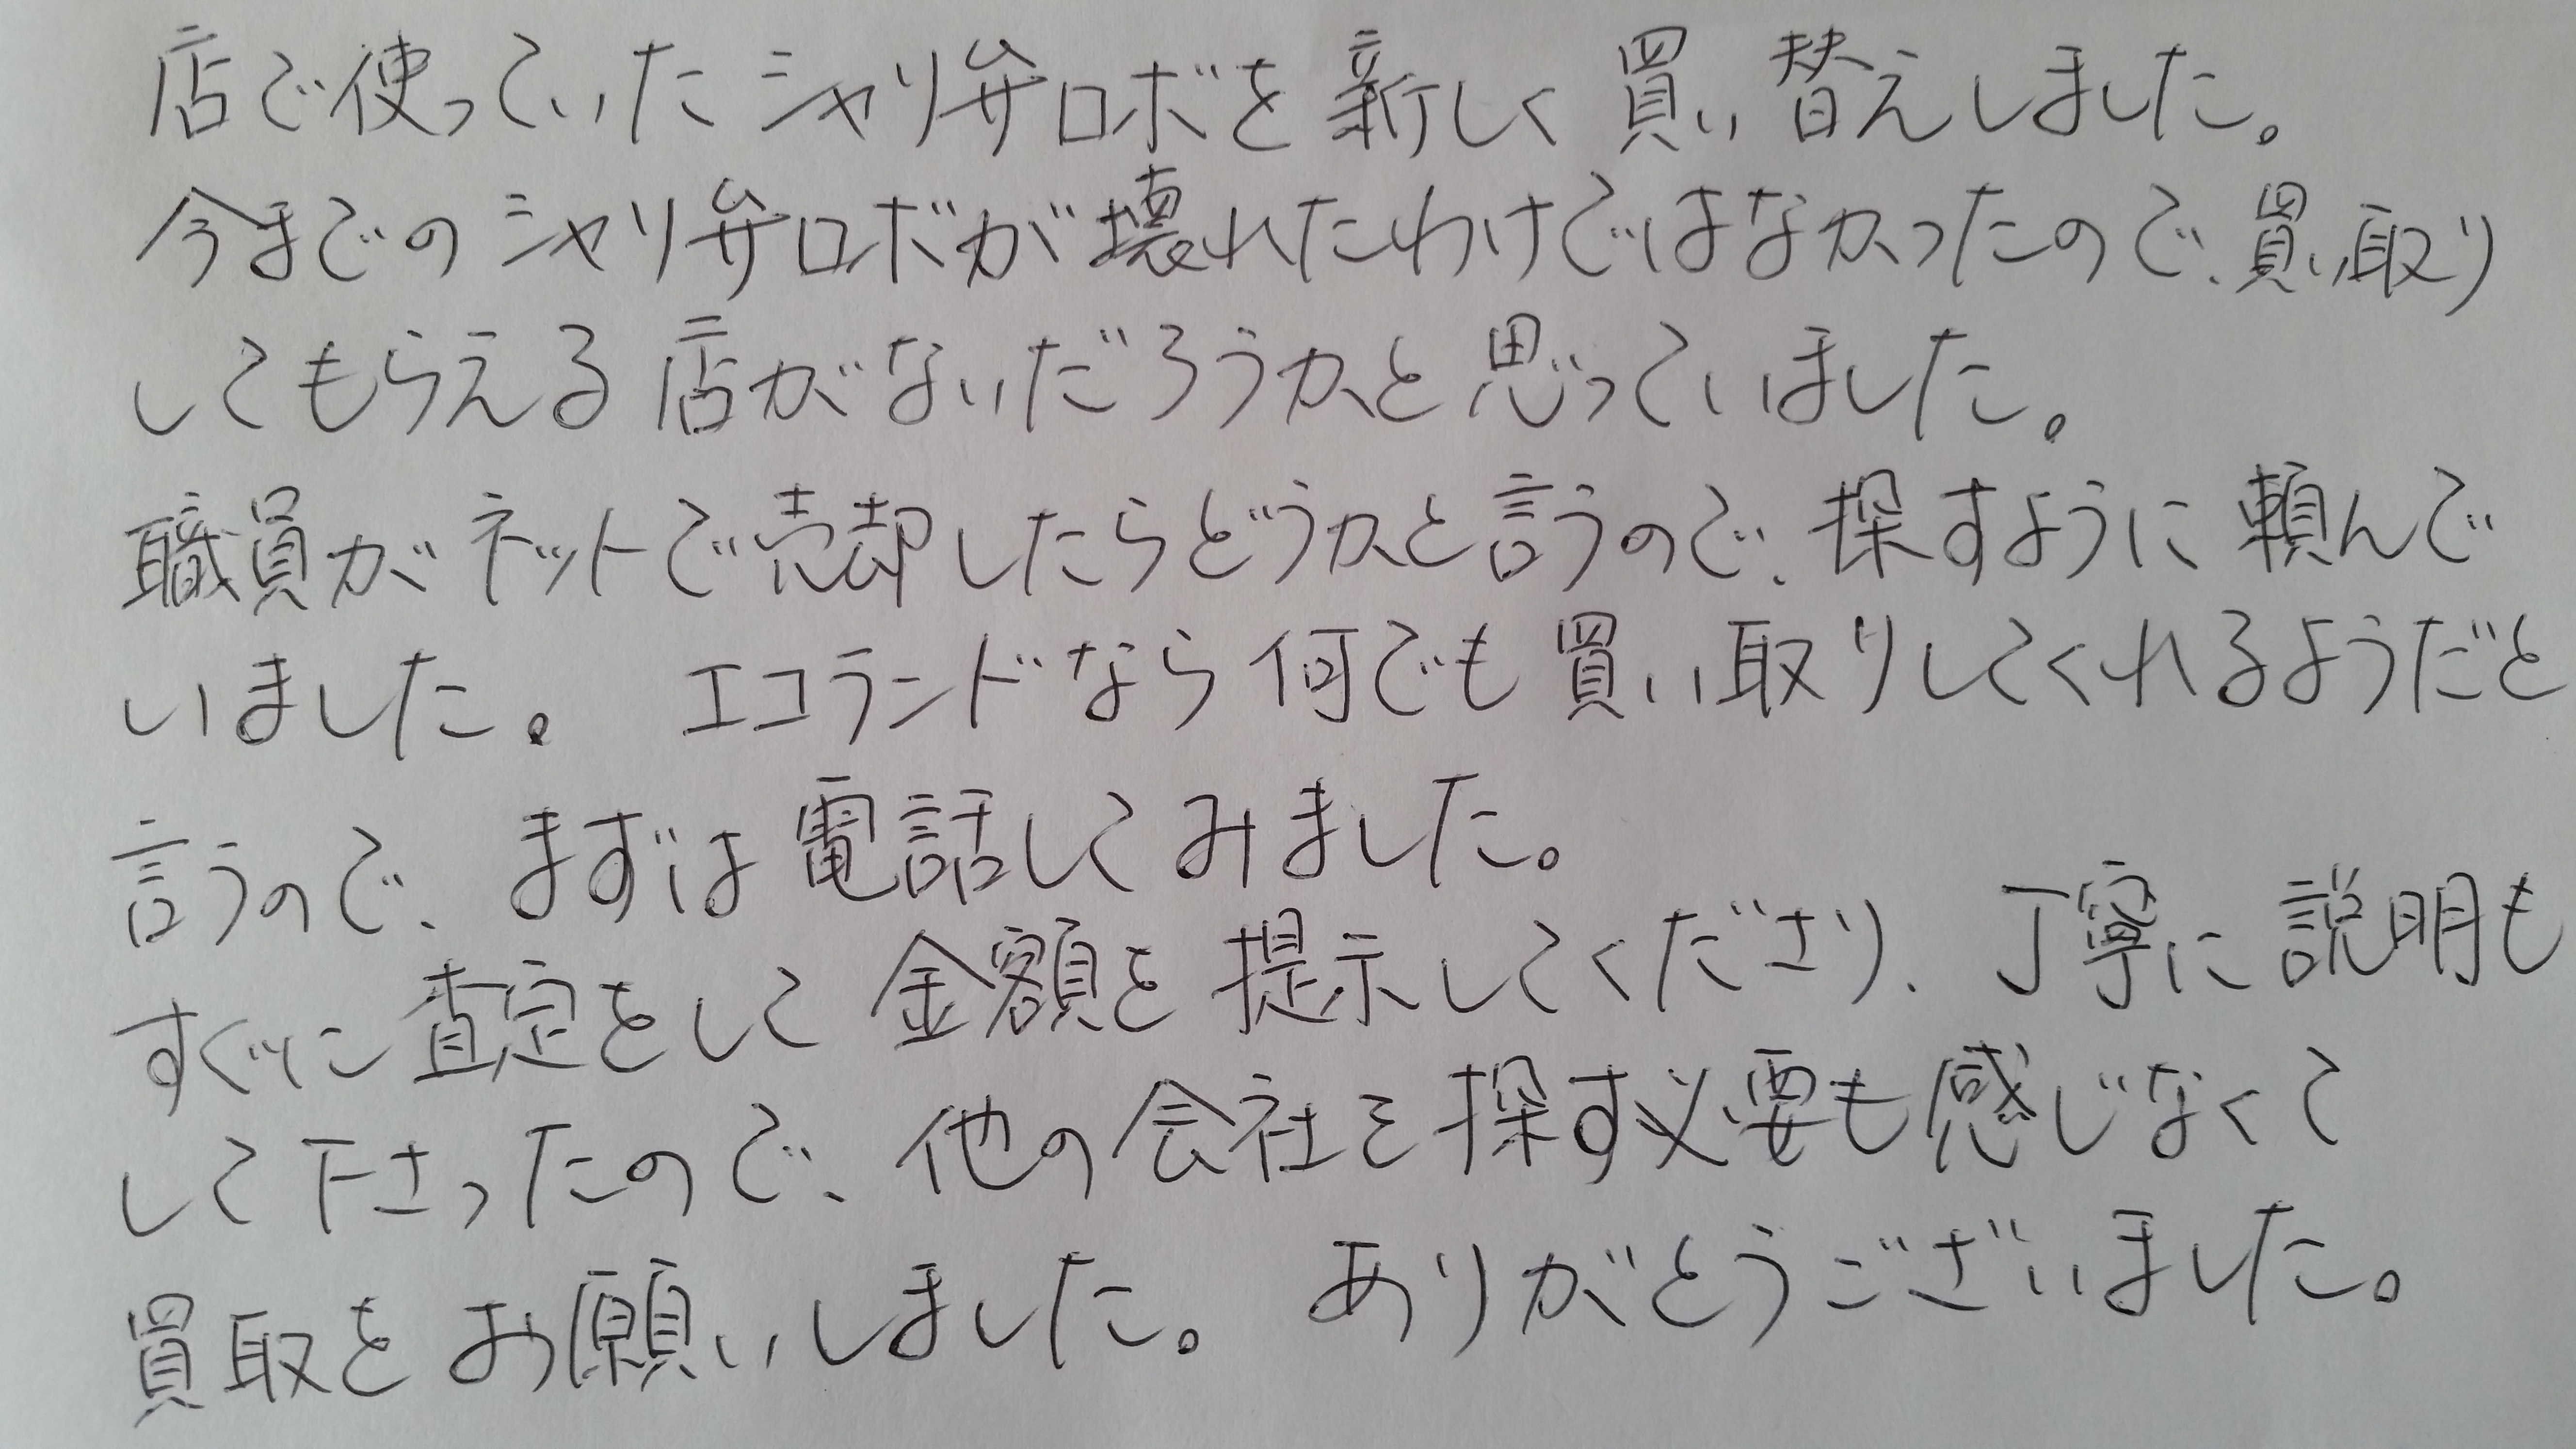 店で使っていたシャリ弁ロボを新しく買い替えしました。
今までのシャリ弁ロボが壊れたわけではなかったので、買い取り
してもらえる店がないだろうかと思っていました。
職員がネットで売却したらどうかと言うので、探すように頼んで
いました。 エコランドなら何でも買い取りしてくれるようだと
言うので、まずは電話してみました。
すぐに査定をして金額を提示してくださり、丁寧に説明も
して下さったので、他の会社を探す必要も感じなくて
買取をお願いしました。 ありがとうございました。